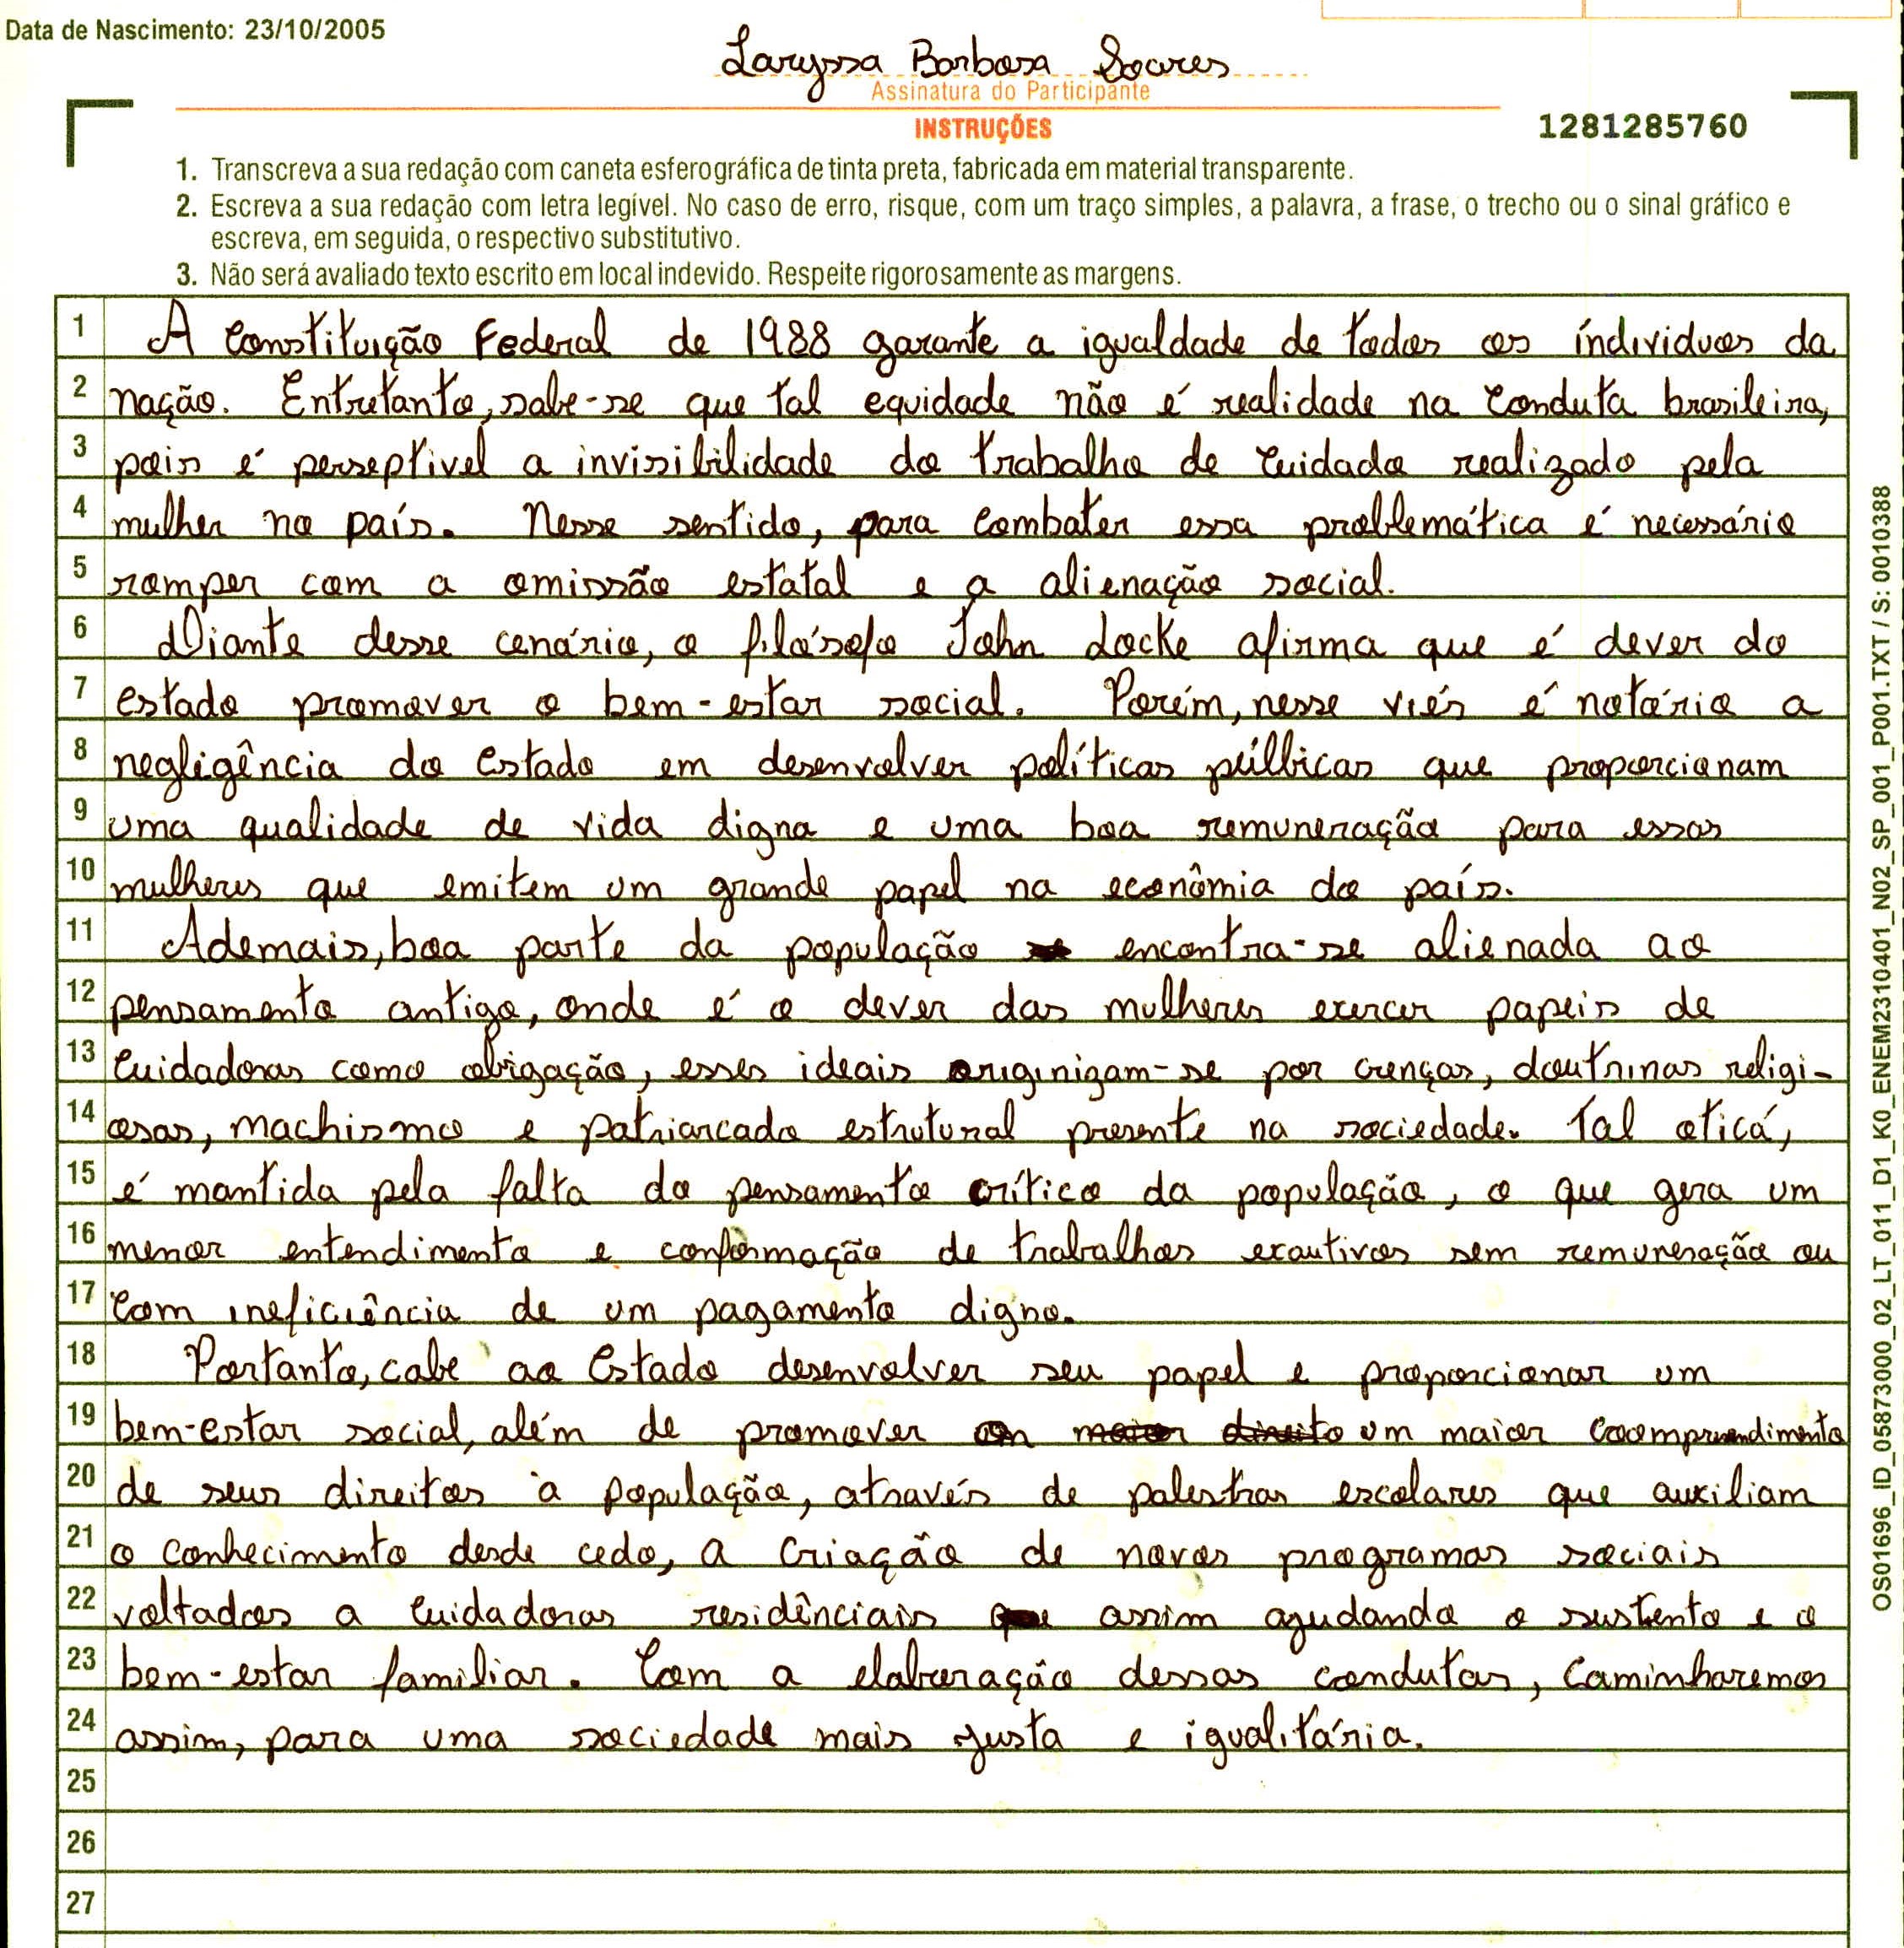 Data de Nascimento: 23/10/2005
Laryssa Barbosa Soares
Assinatura do Participante
INSTRUÇÕES
1281285760
1. Transcreva a sua redação com caneta esferográfica de tinta preta, fabricada em material transparente.
2. Escreva a sua redação com letra legível. No caso de erro, risque, com um traço simples, a palavra, a frase, o trecho ou o sinal gráfico e
escreva, em seguida, o respectivo substitutivo.
3. Não será avaliado texto escrito em local indevido. Respeite rigorosamente as margens.
1 A Constituição Federal de 1988 garante a igualdade de todos os índividuos da
2 nação. Entretanto, sabe-se que tal equidade não é realidade na conduta brasileira,
3 pois é perseptivel a invisibilidade do trabalho de cuidado realizado pela
4 mulher no país. Nesse sentido, para combater essa problemática é necessário
5 romper com a omissão estatal e a alienação social.
6 Diante desse cenário, o filósofo John Locke afirma que é dever do
7 estado promover o bem-estar social. Porém, nesse viés é notório a
8 negligência do Estado em desenvolver políticas públbicas que proporcionam
9 uma qualidade de vida digna e uma boa remuneração para essas
10 mulheres que emitem um grande papel na econômia do país.
11 Ademais, boa parte da população se encontra-se alienada ao
12 pensamento antigo, onde é o dever das mulheres exercer papeis de
13 cuidadoras como obrigação, esses ideais originizam-se por crenças, doutrinas religi-
14 osas, machismo e patriarcado estrutural presente na sociedade. Tal oticá,
15 é mantida pela falta do pensamento crítico da população, o que gera um
16 menor entendimento e conformação de trabalhos exautivos sem remuneração ou
17 com ineficiência de um pagamento digno.
18 Portanto, cabe ao Estado desenvolver seu papel e proporcionar um
19 bem-estar social, além de promover um maior direito um maior coompreendimento
20 de seus direitos à população, através de palestras escolares que auxiliam
21 o conhecimento desde cedo, a criação de novos programas sociais
22 voltados a cuidadoras residênciais que assim ajudando o sustento e o
23 bem-estar familiar. Com a elaboração dessas condutas, caminharemos
24 assim, para uma sociedade mais justa e igualitária.
25
26
27
OS01696_ID_05873000_02_LT_011_D1_K0_ENEM2310401_N02_SP_001_P001.TXT / S: 0010388